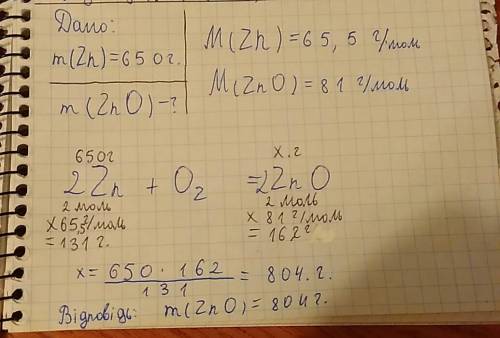 Дано:
m(Zn)=650г.
m(ZnO)-?
M(Zn)=65,5 г/моль
M(ZnO)=81 г/моль
650г x.г
2Zn + O₂ =2ZnO
2 моль 2 моль
x65,5г/моль x 81 г/моль
=131г. = 162г
x= 650·162/131 = 804.г.
Відповідь: m(ZnO)=804г.